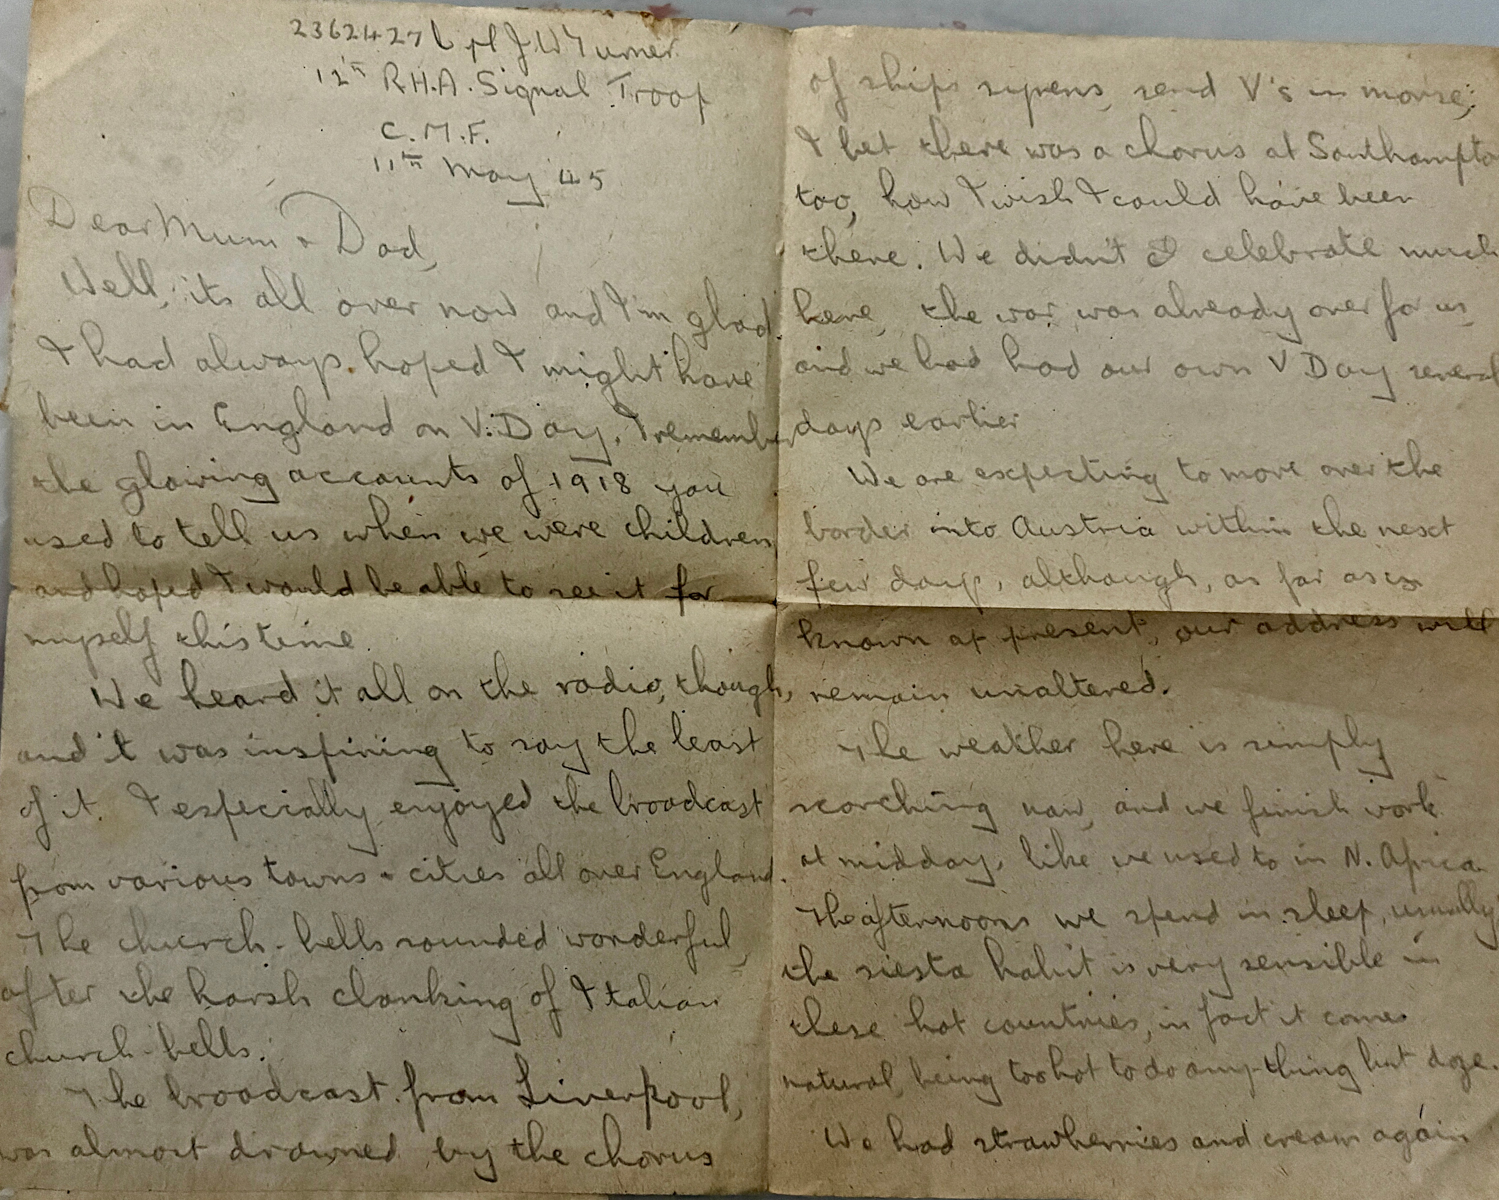 2362427 Cpl J W Turner
12th R.H.A. Signal Troop
C.M.F.
11th May 45
Dear Mum & Dad,
Well, its all over now and I'm glad.
I had always hoped I might have
been in England on V.Day, I remember
the glowing accounts of 1918 you
used to tell us when we were children
and hoped I would be able to see it for
myself this time.
We heard it all on the radio, though,
and it was inspiring to say the least
of it. I especially enjoyed the broadcast
from various towns & cities all over England.
The church-bells sounded wonderful,
after the harsh clanking of Italian
church-bells.
The broadcast from Liverpool,
was almost drowned by the chorus
of ships sypens, send V's in morse;
I bet there was a chorus at Southampto
too, how I wish I could have been
there. We didn't celebrate much
here, the war was already over for us,
and we had had our own V Day several
days earlier
We are expecting to move over the
border into Austria within the next
few days, although, as far as is
known at present, our address will
remain unaltered.
The weather here is simply
scorching now, and we finish work
at midday, like we used to in N. Africa.
The afternoons we spend in sleep, usually
the siesta habit is very sensible in
these hot countries, in fact it comes
natural, being too hot to do any-thing but doze.
We had strawberries and cream again